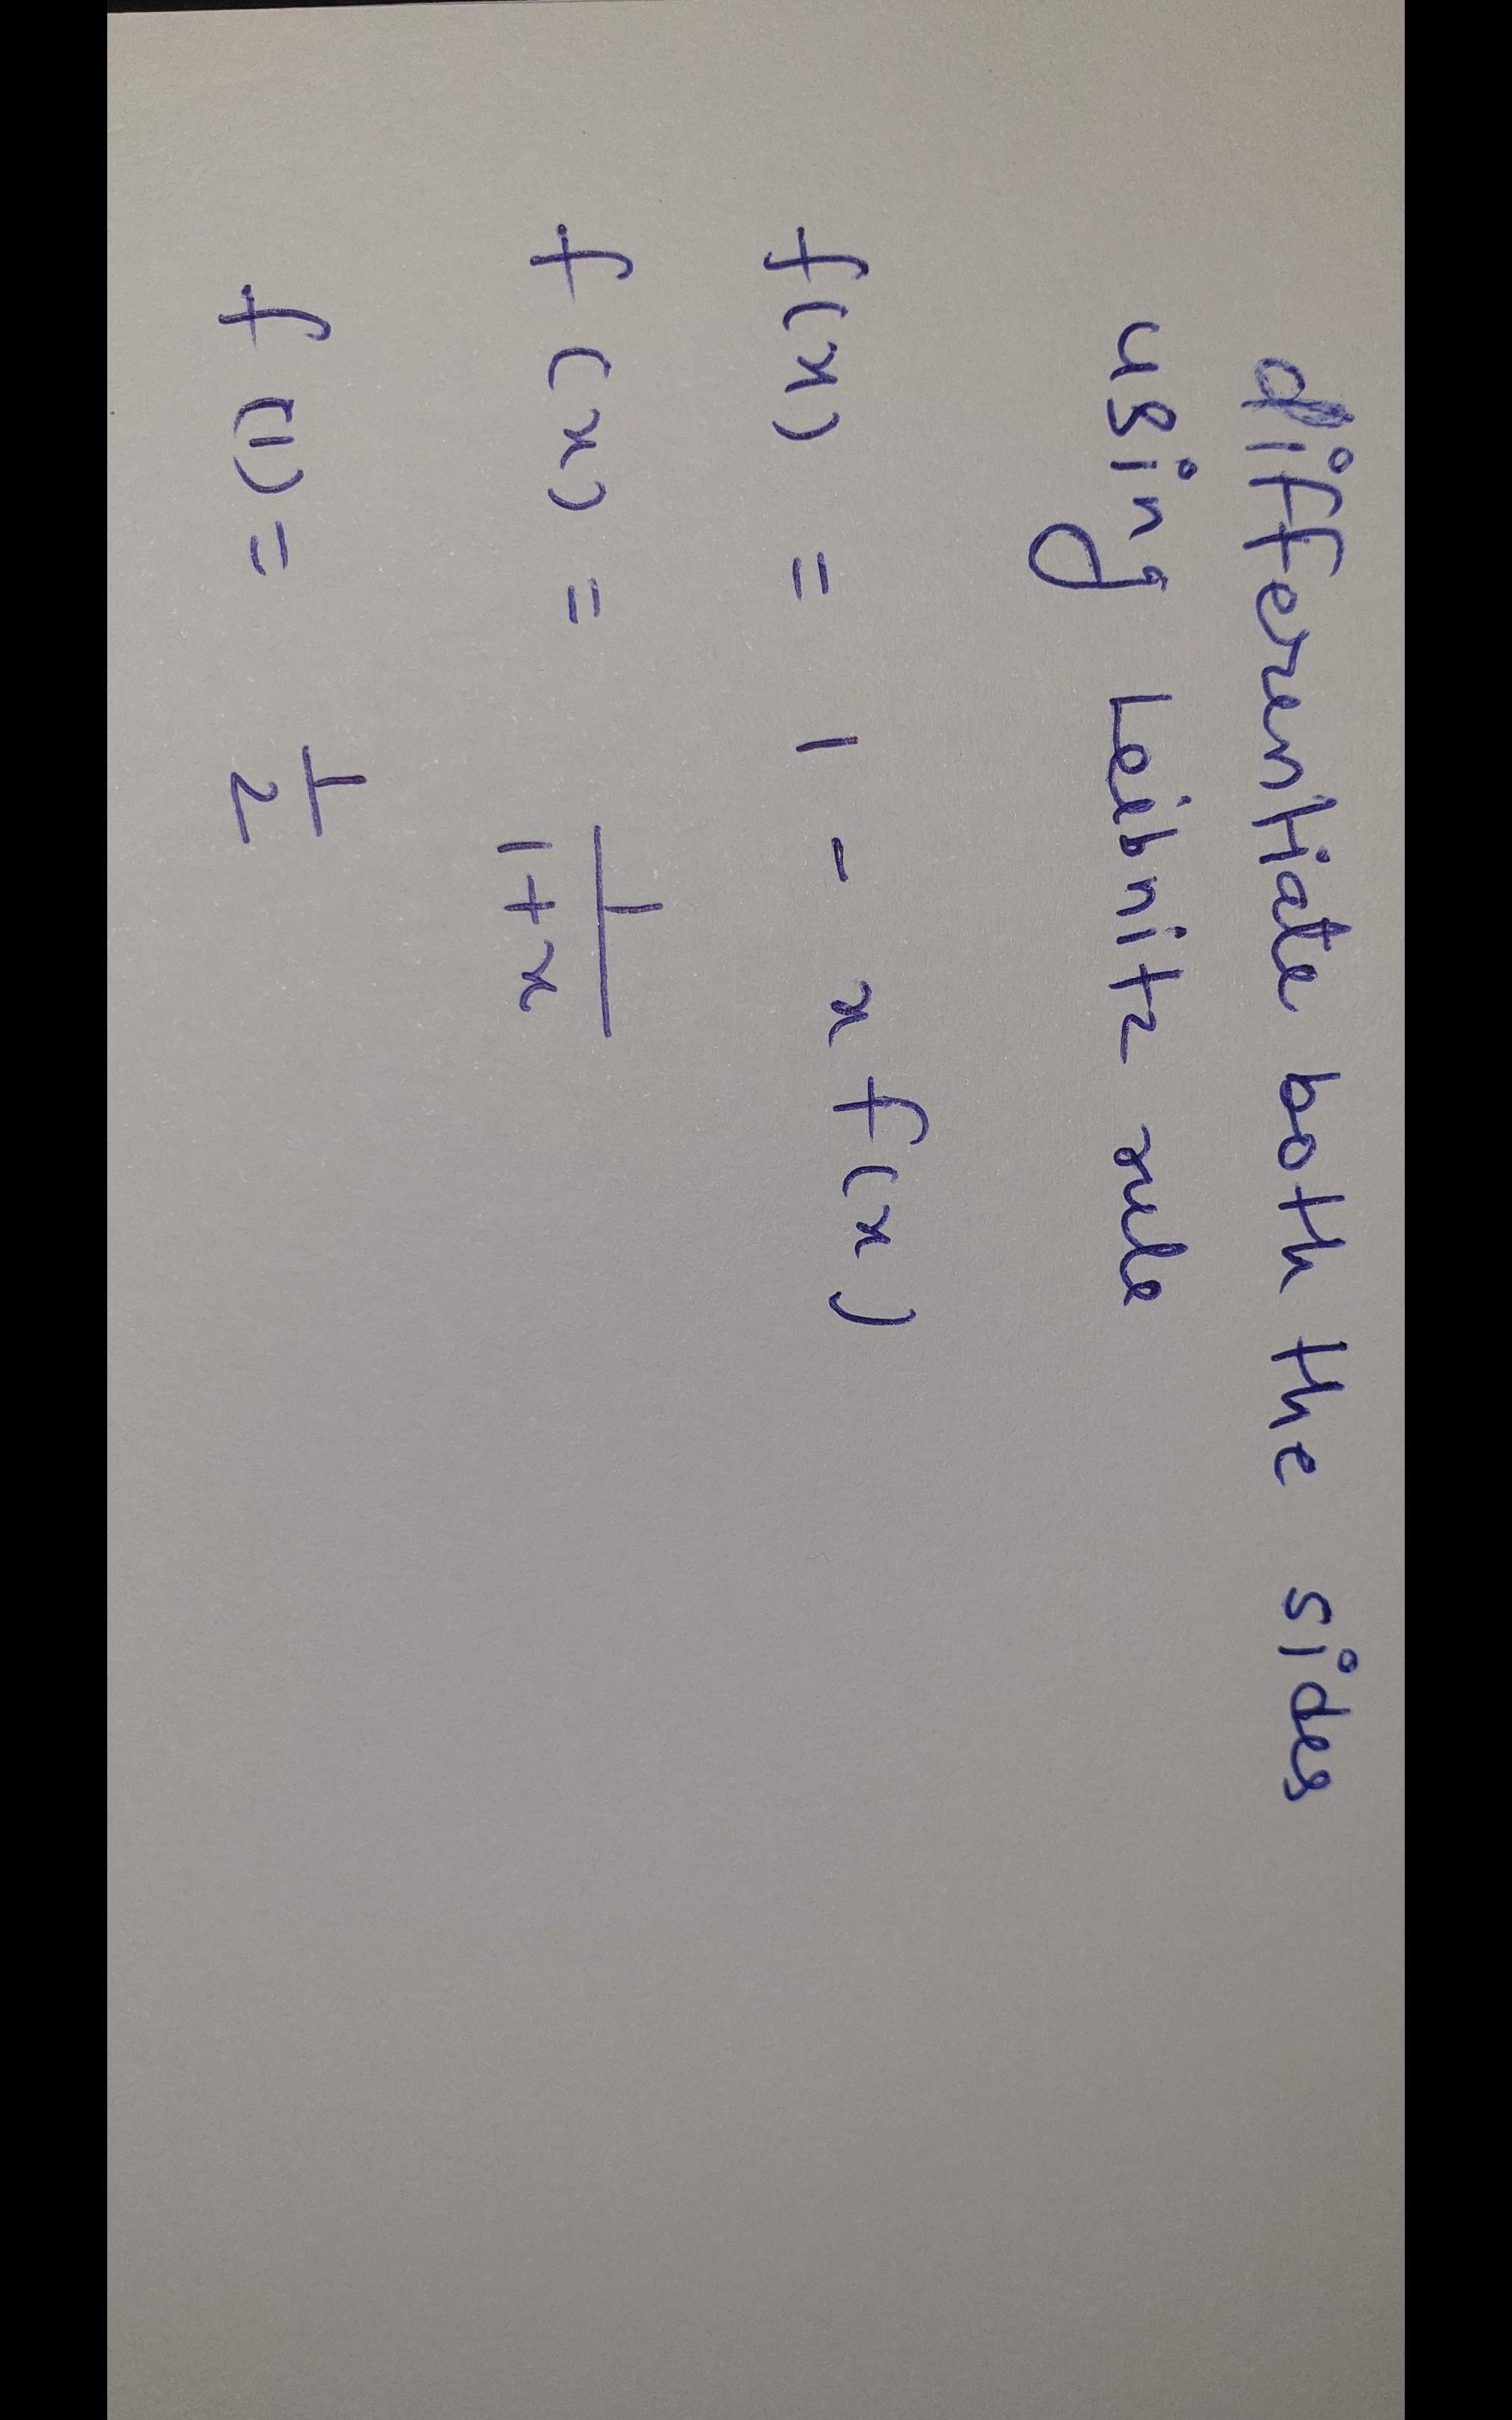 differentiate both the sides
using Leibnitz rule
f(x) = 1 - x f(x)
f(x) = 1/(1+x)
f(1) = 1/2